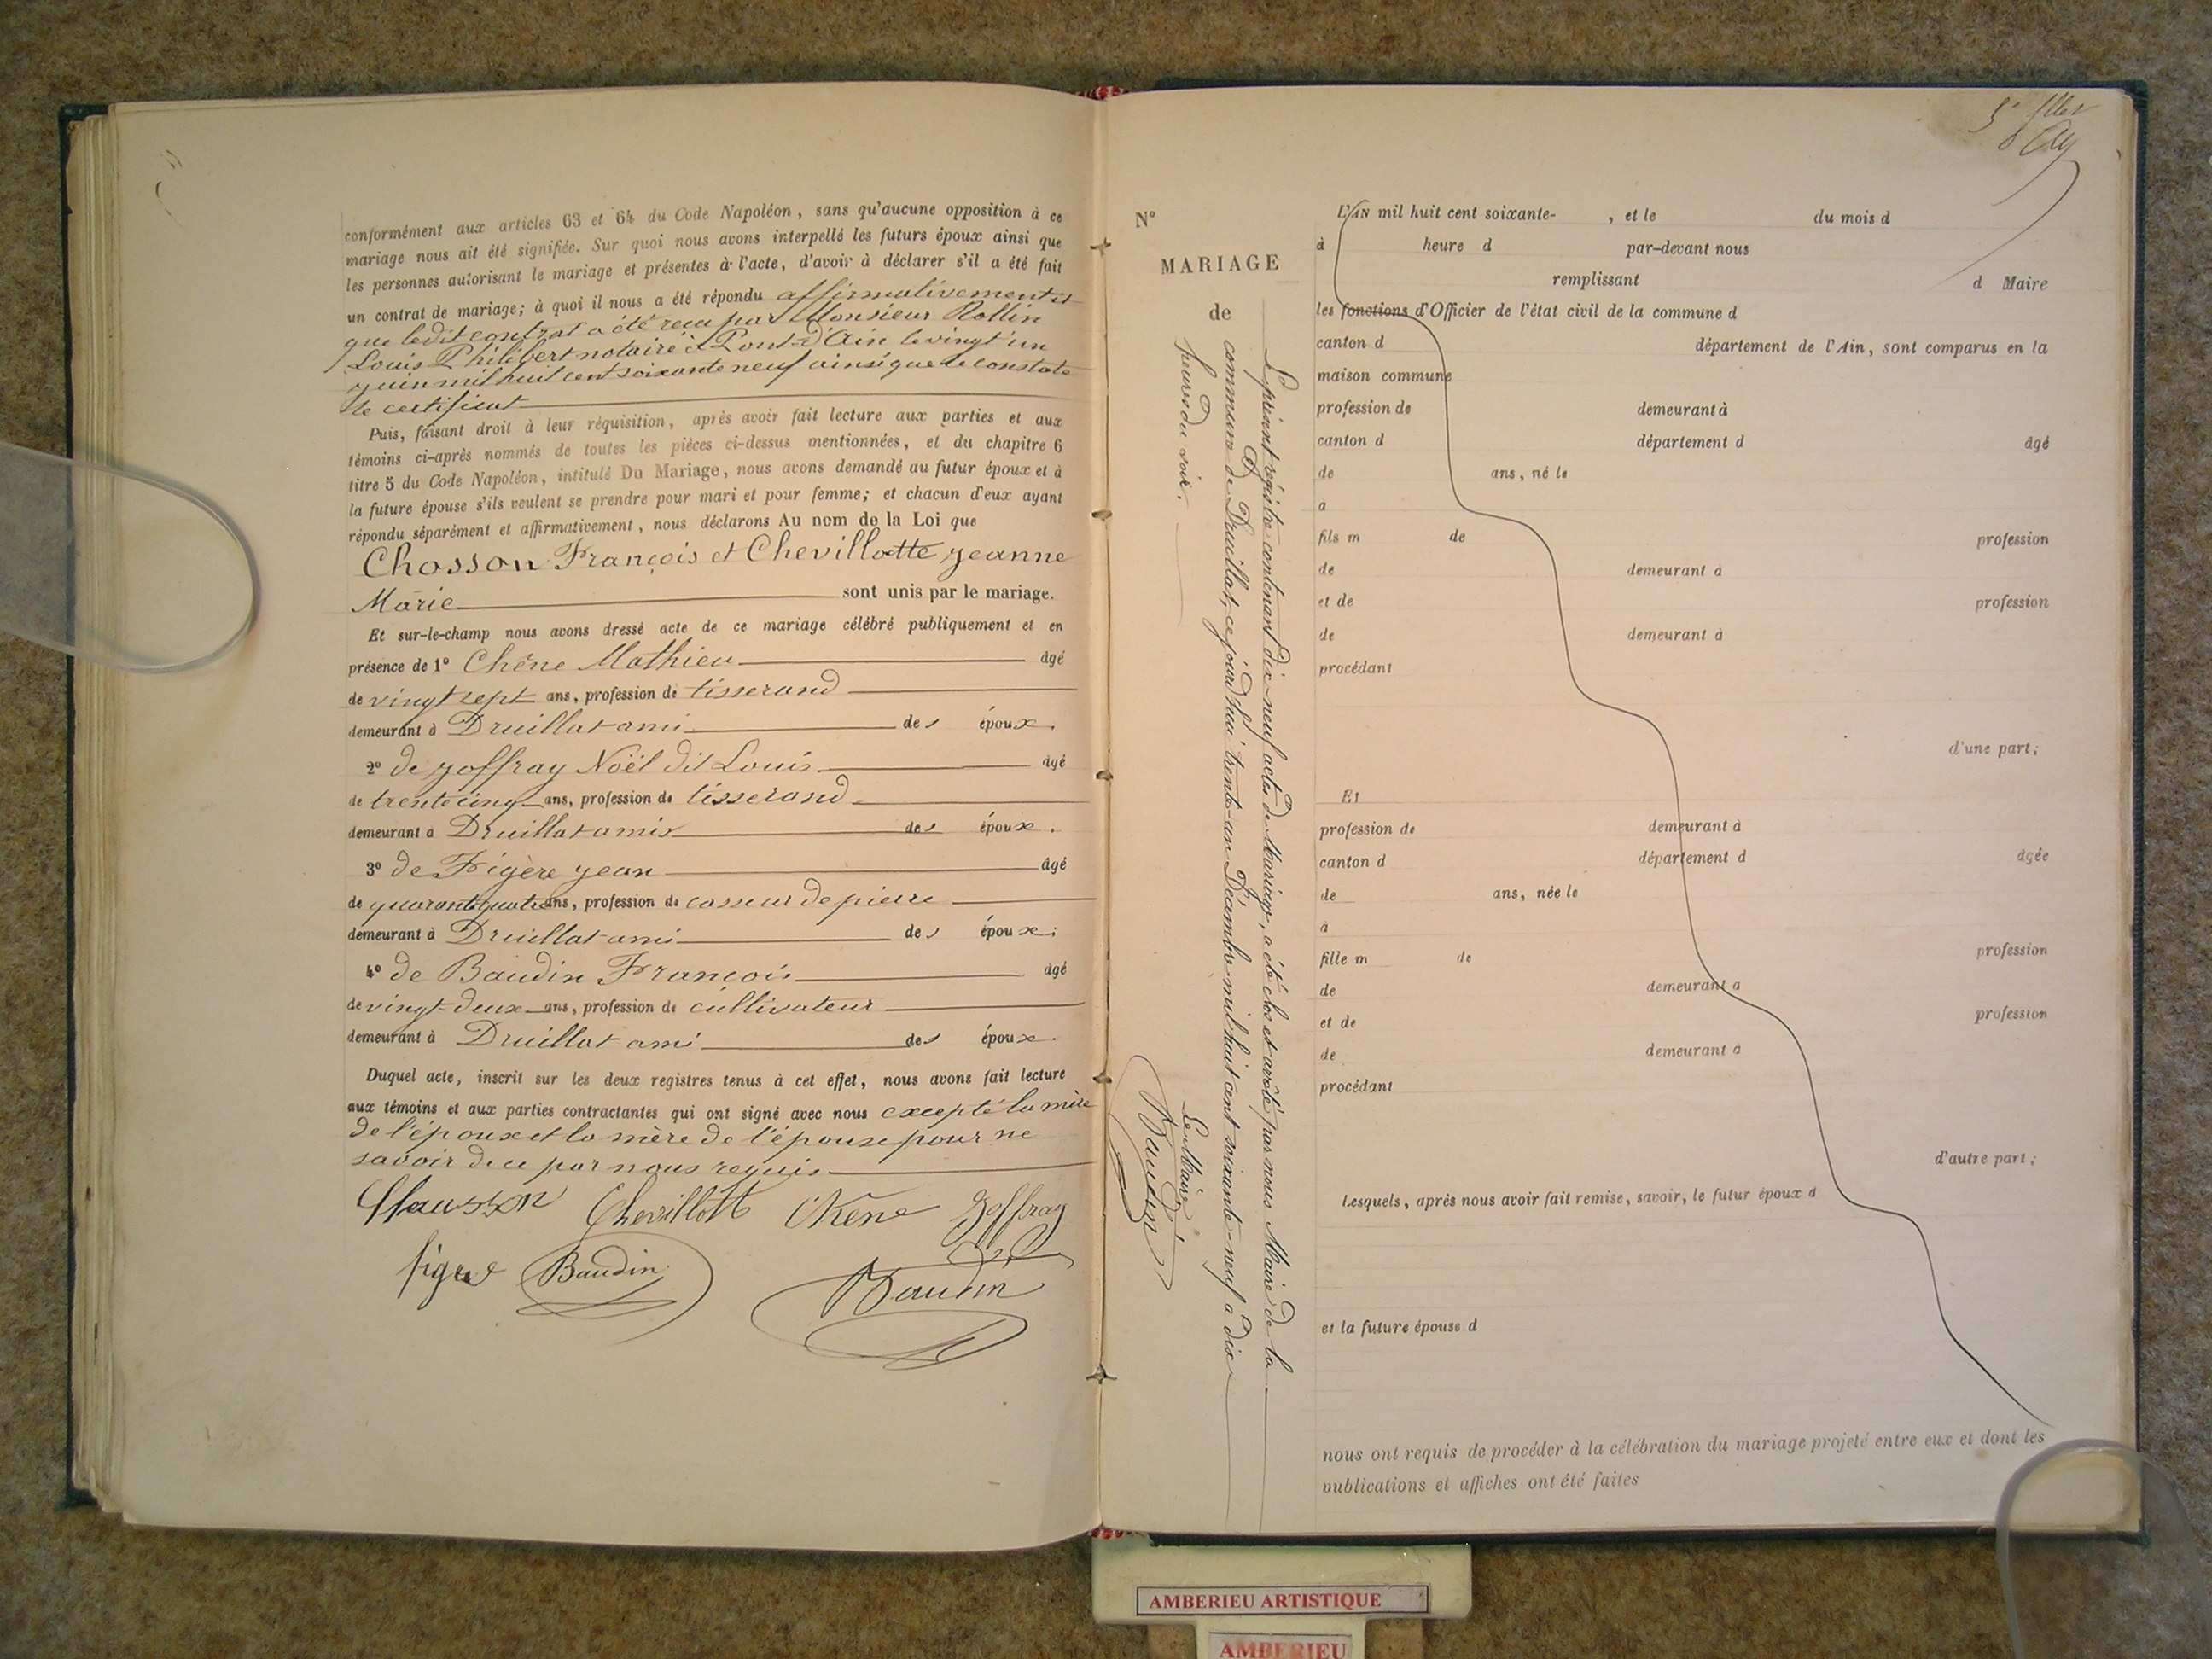 conformément aux articles 63 et 64 du Code Napoléon, sans qu'aucune opposition à ce
mariage nous ait été signifiée. Sur quoi nous avons interpellé les futurs époux ainsi que
les personnes autorisant le mariage et présentes à l'acte, d'avoir à déclarer s'il a été fait
un contrat de mariage; à quoi il nous a été répondu affirmativement et
que ledit contrat a été reçu par Monsieur Rollin
Louis Philibert notaire à Pont-d'Ain le vingt un
juin mil huit cent soixante neuf ainsi que le constate
le certificat
Puis, faisant droit à leur réquisition, après avoir fait lecture aux parties et aux
témoins ci-après nommés de toutes les pièces ci-dessus mentionnées, et du chapitre 6
titre 5 du Code Napoléon, intitulé Du Mariage, nous avons demandé au futur époux et à
la future épouse s'ils veulent se prendre pour mari et pour femme; et chacun d'eux ayant
répondu séparément et affirmativement, nous déclarons Au nom de la Loi que
Chosson François et Chevillotte jeanne
Marie sont unis par le mariage.
Et sur-le-champ nous avons dressé acte de ce mariage célébré publiquement et en
présence de 1° Chêne Mathieu âgé
de vingt sept ans, profession de tisserand
demeurant à Druillat ami des époux.
2° de joffray Noël dit Louis âgé
de trente cinq ans, profession de tisserand
demeurant à Druillat amis des époux.
3° de Figère jean âgé
de quarante quatre ans, profession de casseur de pierre
demeurant à Druillat ami des époux;
4° de Baudin François âgé
de vingt-deux ans, profession de cultivateur
demeurant à Druillat ami des époux.
Duquel acte, inscrit sur les deux registres tenus à cet effet, nous avons fait lecture
aux témoins et aux parties contractantes qui ont signé avec nous excepté la mère
de l'époux et la mère de l'épouse pour ne
savoir de ce par nous requis
Chevillott Chêne Joffray
figère Baudin Baudin
N°
MARIAGE
de
Le présent régistre contenant dix-neuf actes de Mariage, a été clos et arrêté par nous Maire de la
commune de Druillat, ce jourd'hui trente-un Décembre mil huit cent soixante-neuf à dix
heures du soir.
Le Maire
Baudin
L'AN mil huit cent soixante- , et le du mois d
à heure d par-devant nous
remplissant d Maire
les fonctions d'Officier de l'état civil de la commune d
canton d département de l'Ain, sont comparus en la
maison commune
profession de demeurant à
canton d département d âgé
de ans, né le
a
fils m de profession
de demeurant à
et de profession
de demeurant à
procédant
d'une part;
Et
profession de demeurant à
canton d département d âgée
de ans, née le
à
fille m de profession
de demeurant a
et de profession
de demeurant a
procédant
d'autre part;
Lesquels, après nous avoir fait remise, savoir, le futur époux d
et la future épouse d
nous ont requis de procéder à la célébration du mariage projeté entre eux et dont les
publications et affiches ont été faites
AMBERIEU ARTISTIQUE
AMBERIEU